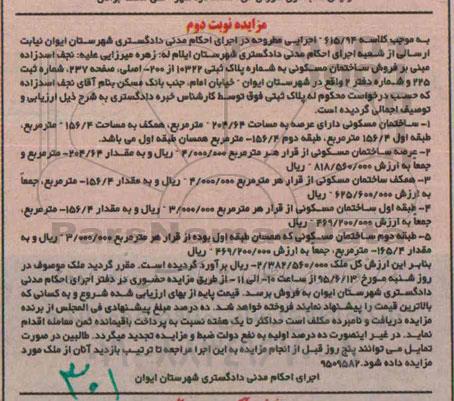 مزایده نوبت دوم
به موجب کلاسه ۶۱۵/۹۴ اجرایی مطروحه در اجرای احکام مدنی دادگستری شهرستان ایوان نیابت
ارسالی از شعبه اجرای احکام مدنی دادگستری شهرستان ایلام له: زهره میرزایی علیه: نجف اسدزاده
مبنی بر فروش ساختمان مسکونی به شماره پلاک ثبتی ۱۰۳۲۲ از ۲۰۰- اصلی، صفحه ۲۳۷، شماره ثبت
۲۲۵ و شماره دفتر ۲ واقع در شهرستان ایوان - خیابان امام، جنب بانک مسکن بنام آقای نجف اسدزاده
که حسب درخواست محکوم له پلاک ثبتی فوق توسط کارشناس خبره دادگستری به شرح ذیل ارزیابی و
توصیف اجمالی گردیده است.
۱- ساختمان مسکونی دارای عرصه به مساحت ۲۰۴/۶۴ - مترمربع، همکف به مساحت ۱۵۶/۴ - مترمربع،
طبقه اول ۱۵۶/۴ مترمربع، طبقه دوم ۱۵۶/۴- مترمربع همسان طبقه اول می باشد.
۲- عرصه ساختمان مسکونی از قرار هر مترمربع ۴/۰۰۰/۰۰۰ - ریال و به مقدار ۲۰۴/۶۴- مترمربع و
جمعاً به ارزش ۸۱۸/۵۶۰/۰۰۰ - ریال
۳- همکف ساختمان مسکونی از قرار هر مترمربع ۴/۰۰۰/۰۰۰ - ریال و به مقدار ۱۵۶/۴- مترمربع، جمعاً
به ارزش ۶۲۵/۶۰۰/۰۰۰ - ریال
۴- طبقه اول ساختمان مسکونی از قرار هر مترمربع ۳/۰۰۰/۰۰۰ - ریال و به مقدار ۱۵۶/۴- مترمربع،
جمعاً به ارزش ۴۶۹/۲۰۰/۰۰۰ - ریال
۵- طبقه دوم ساختمان مسکونی که همسان طبقه اول بوده از قرار هر مترمربع ۳/۰۰۰/۰۰۰ - ریال و به
مقدار ۱۶۵/۴- مترمربع، جمعاً به ارزش ۴۶۹/۲۰۰/۰۰۰ ریال
بنابر این ارزش کل ملک ۲/۳۸۲/۵۶۰/۰۰۰- ریال برآورد گردیده است. مقرر گردید ملک موصوف در
روز شنبه مورخ ۹۵/۶/۱۳ از ساعت ۱۰- الی ۱۱- از طریق مزایده حضوری در دفتر اجرای احکام مدنی
دادگستری شهرستان ایوان به فروش برسد. قیمت پایه از بهای ارزیابی شده شروع و به کسانی که
بالاترین قیمت را پیشنهاد نمایند فروخته خواهد شد. ده درصد مبلغ پیشنهادی فی المجلس از برنده
مزایده دریافت و نامبرده مکلف است حداکثر تا یک هفته نسبت به پرداخت باقیمانده ثمن معامله اقدام
نماید. در غیر اینصورت ده درصد اولیه به نفع دولت ضبط و مزایده تجدید میگردد. طالبین در صورت
تمایل می توانند پنج روز قبل از انجام مزایده به این اجرا مراجعه تا ترتیب بازدید آنان از ملک مورد
مزایده داده شود. ۹۵۰۹۵۸۲
اجرای احکام مدنی دادگستری شهرستان ایوان
۳۰۱